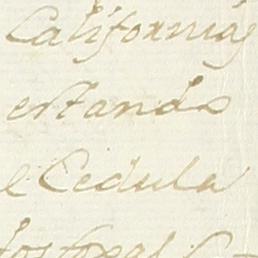 Californias
estando
e Cedula